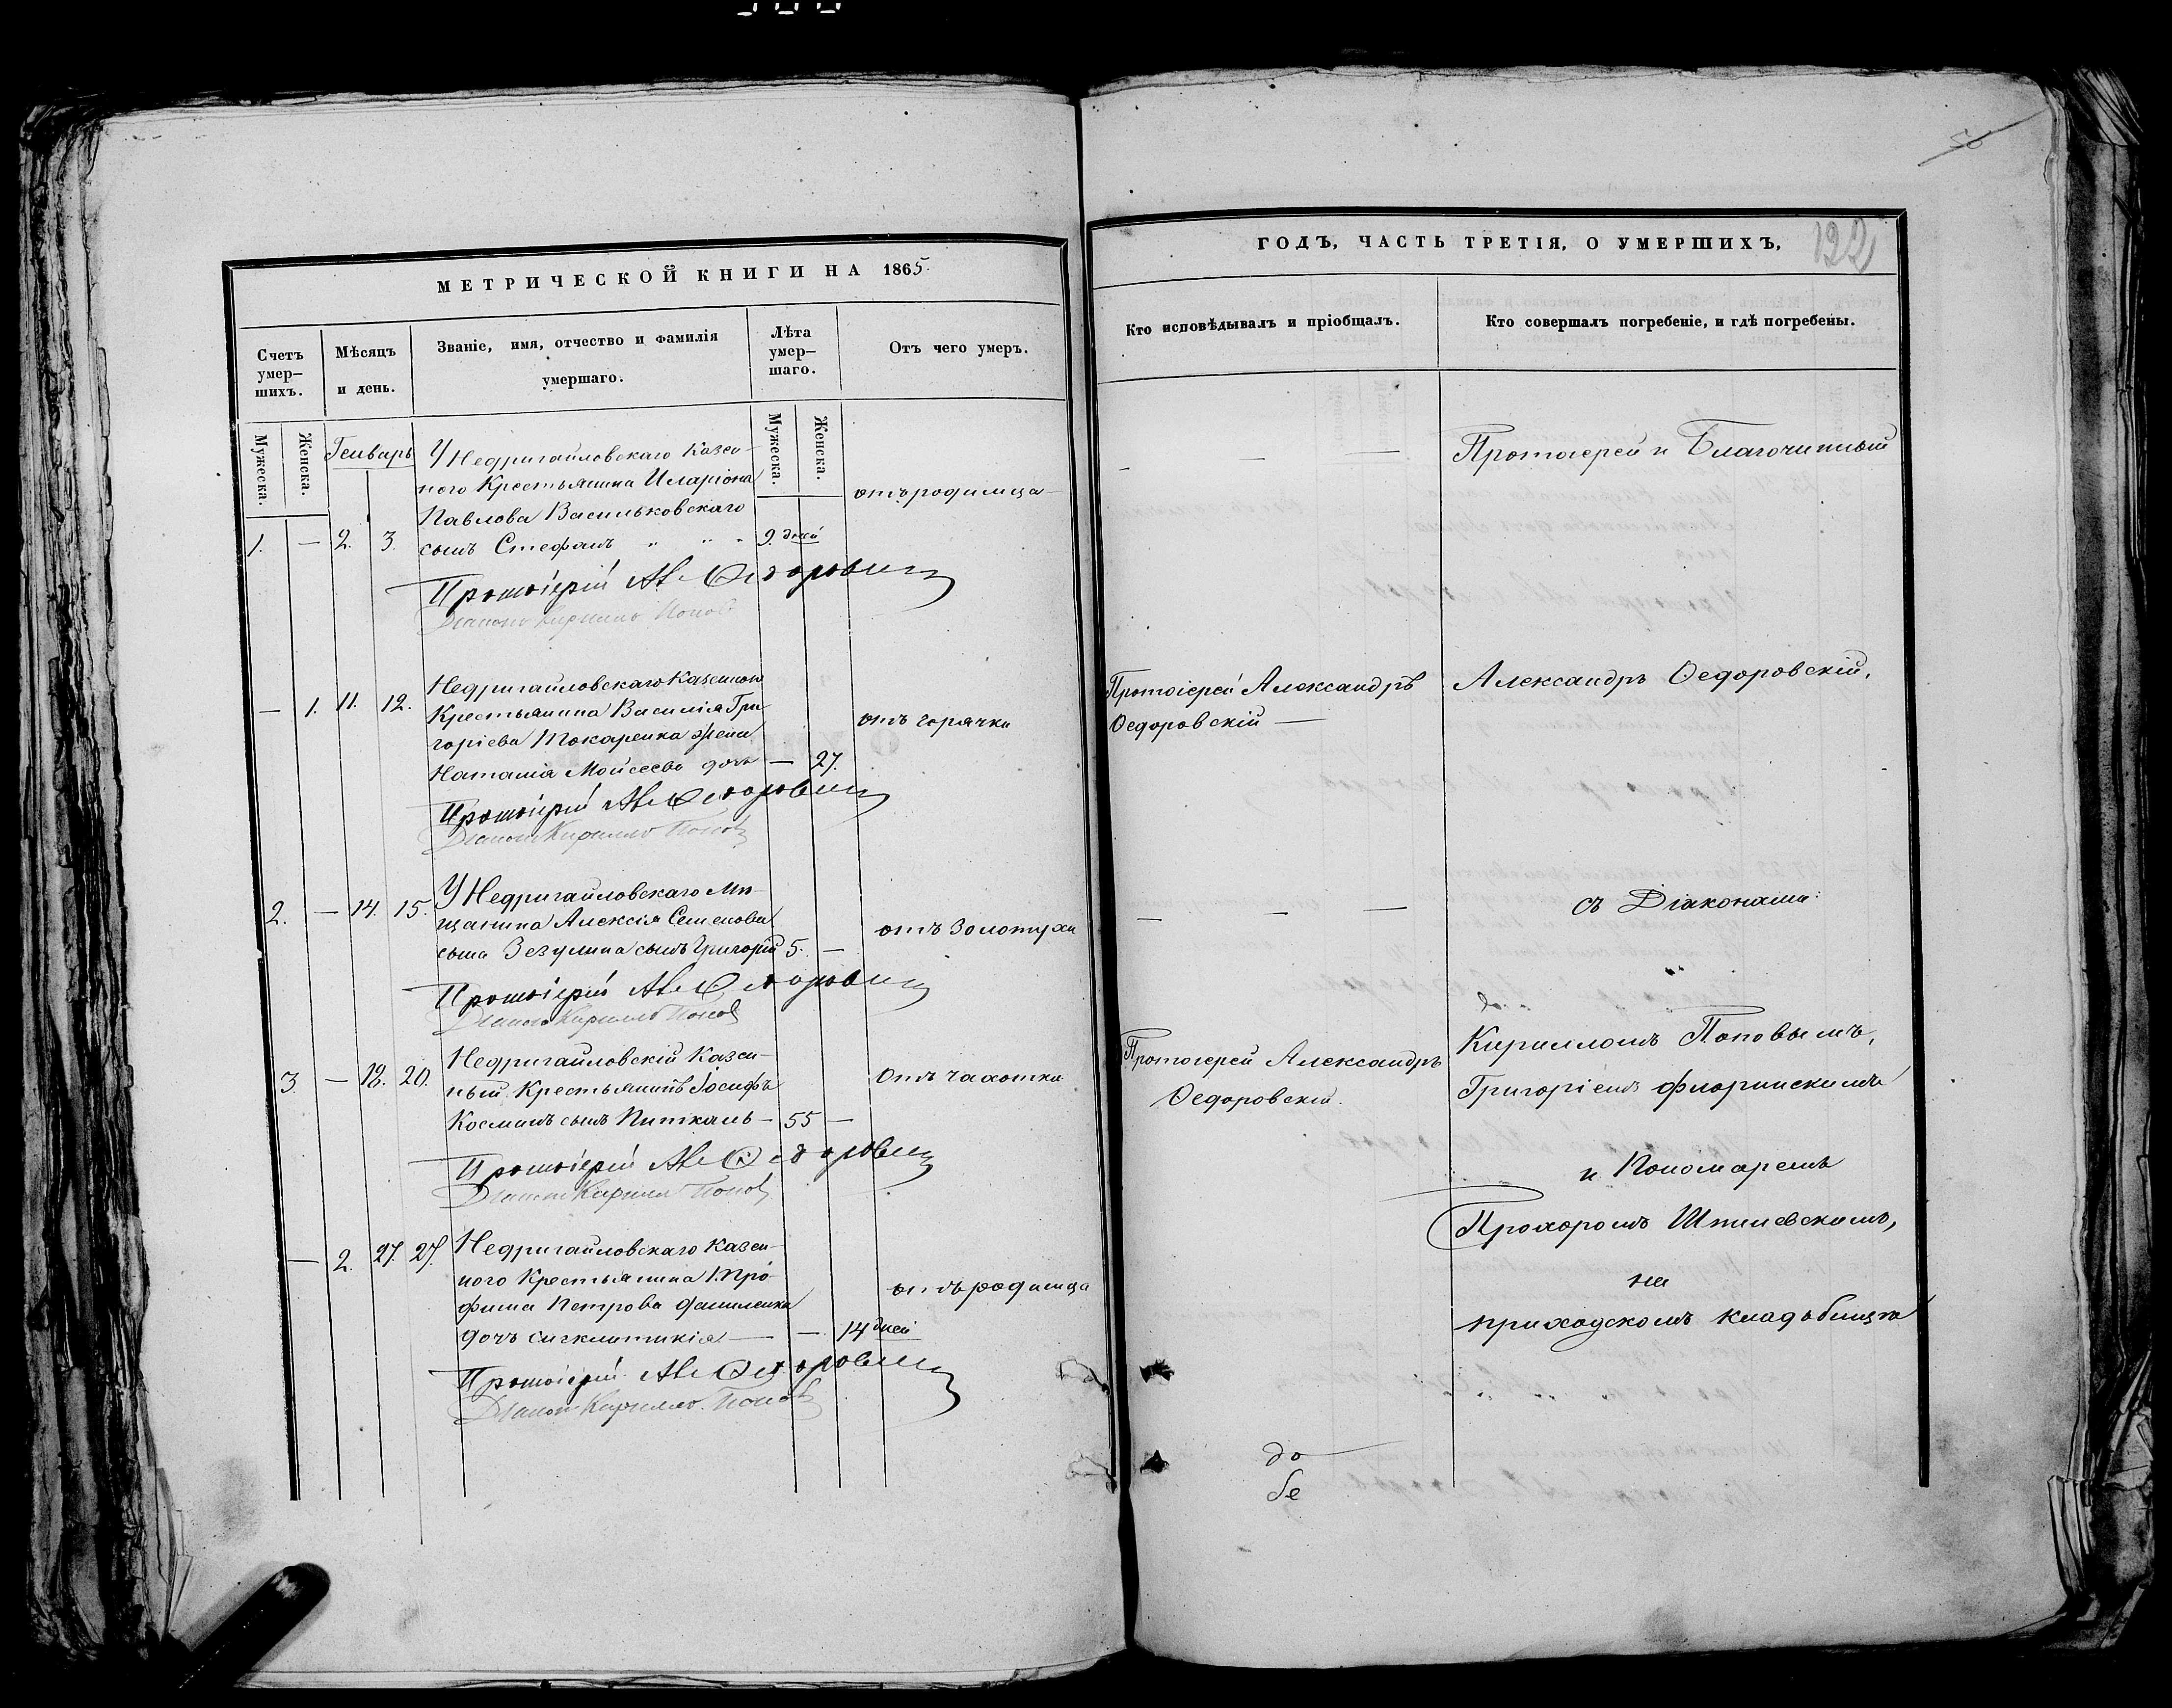 МЕТРИЧЕСКОЙ КНИГИ НА 1865.
Счетъ умер-шихъ.
Мѣсяцъ и день.
Званіе, имя, отчество и фамилія умершаго.
Лѣта умер-шаго.
Отъ чего умеръ.
Мужеска.
Женска.
Генварь
Мужеска.
Женска.
У Недригайловскаго Казен-
наго Крестьянина Иларіона
Павлова Васильковскаго
отъ родимца
1. — 2. 3. сынъ Стефанъ 9. дней
Протоіерей Ал. Ѳедоровскій
Діаконъ Кириллъ Поповъ
Недригайловскаго Казеннаго
— 1. 11. 12. Крестьянина Василія Гри-
горіева Токаренка жена
Наталія Моисеева дочь — 27.
отъ горячки
Протоіерей Ал. Ѳедоровскій
Діаконъ Кириллъ Поповъ
У Недригайловскаго Мѣ-
2. — 14. 15. щанина Алексія Семенова
сына Зезулина сынъ Григорій 5. —
отъ Золотухи
Протоіерей Ал. Ѳедоровскій
Діаконъ Кириллъ Поповъ
Недригайловскій Казен-
3. — 18. 20. ный Крестьянинъ Іосифъ
Косминъ сынъ — 55 —
Отъ Чахотки
Протоіерей Ал. Ѳедоровскій
Діаконъ Кириллъ Поповъ
— 2. 27. 27. Недригайловскаго Казен-
наго Крестьянина
Петрова
дочь Сигклитикія — — 14 дней
отъ родимца
Протоіерей Ал. Ѳедоровскій
Діаконъ Кириллъ Поповъ
56
ГОДЪ, ЧАСТЬ ТРЕТІЯ, О УМЕРШИХЪ,
122
Кто исповѣдывалъ и пріобщалъ.
Кто совершалъ погребеніе, и гдѣ погребены.
— — —
Протоіерей Александръ
Ѳедоровскій —
— — —
Протоіерей Александръ
Ѳедоровскій.
до
бе
Протоіерей и Благочинный
Александръ Ѳедоровскій,
съ Діаконами:
Кирилломъ Поповымъ,
Григоріемъ Флоринскимъ
и Пономаремъ
Прохоромъ
на
приходскомъ кладьбищѣ